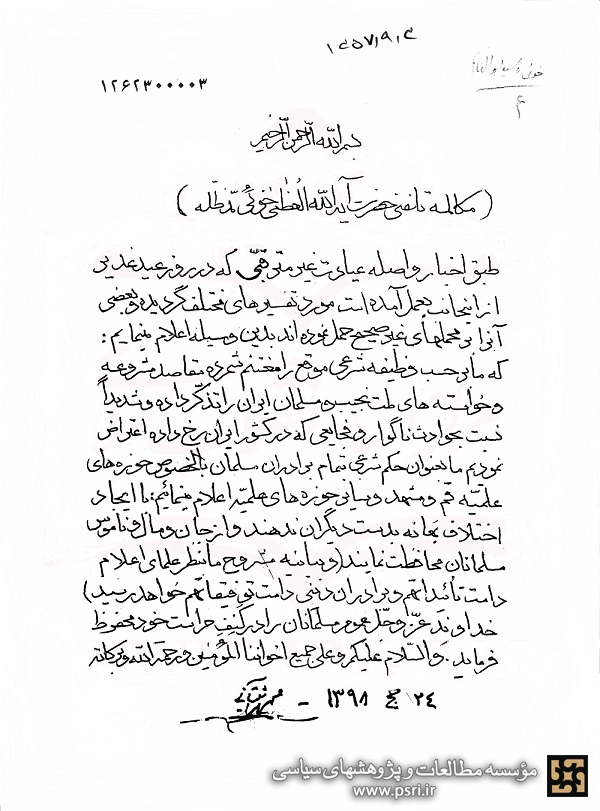 ۱۳۵۷٫۹٫۴
۱۲۶۲۳۰۰۰۰۳
خوئی
۶
بسم الله الرحمن الرحیم
(مکالمه تلفنی حضرت آیة الله العظمی خوئی مدّ ظله)
طبق اخبار واصله عیادت غیر مترقبی که در روز عید غدیر
از اینجانب بعمل آمده است مورد تفسیرهای مختلف گردیده و بعضی
آنرا بر محملهای غیر صحیح حمل نموده اند بدین وسیله اعلام مینمایم:
که ما بر حسب وظیفه شرعی موقع را مغتنم شمرده مقاصد مشروعه
و خواسته های ملت نجیب و مسلمان ایران را تذکر داده و شدیداً
نسبت بحوادث ناگوار و فجایعی که در کشور ایران رخ داده اعتراض
نمودیم ما بعنوان حکم شرعی تمام برادران مسلمان بالخصوص حوزه های
علمیّه قم و مشهد و سایر حوزه های علمیّه اعلام مینمائیم: با ایجاد
اختلاف بهانه بدست دیگران ندهند و از جان و مال و ناموس
مسلمانان محافظت نمایند (و بیانیه مشروح ما بنظر علمای اعلام
دامت تأئیداتهم و برادران دینی دامت توفیقاتهم خواهد رسید)
خداوند عزّ و جلّ عموم مسلمانان را در کنف حراست خود محفوظ
فرماید. والسّلام علیکم و علی جمیع اخواننا المؤمنین و رحمة الله و برکاته
۲۴ ۱۳۹۸ -
مؤسسه مطالعات و پژوهشهای سیاسی
www.psri.ir